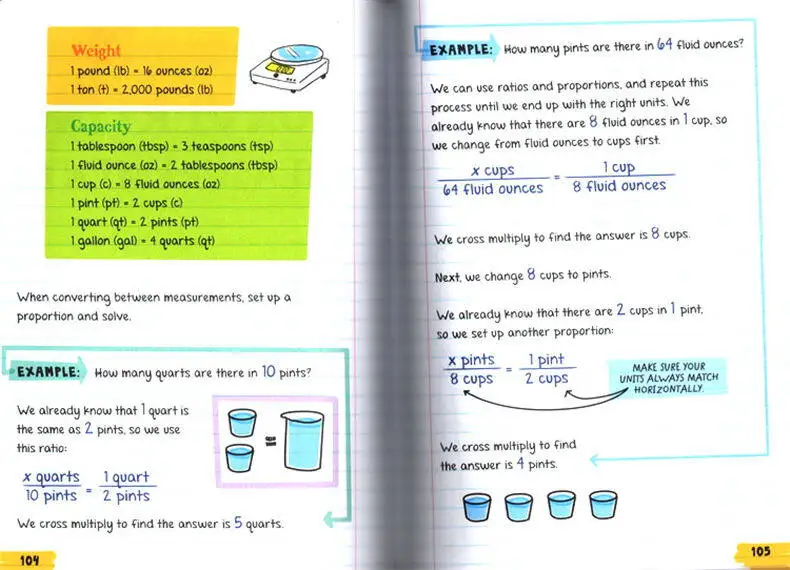 Weight
1 pound (lb) = 16 ounces (oz)
1 ton (t) = 2,000 pounds (lb)
Capacity
1 tablespoon (tbsp) = 3 teaspoons (tsp)
1 fluid ounce (oz) = 2 tablespoons (tbsp)
1 cup (c) = 8 fluid ounces (oz)
1 pint (pt) = 2 cups (c)
1 quart (qt) = 2 pints (pt)
1 gallon (gal) = 4 quarts (qt)
When converting between measurements, set up a
proportion and solve.
EXAMPLE: How many quarts are there in 10 pints?
We already know that 1 quart is
the same as 2 pints, so we use
this ratio:
x quarts / 10 pints = 1 quart / 2 pints
=
We cross multiply to find the answer is 5 quarts.
104
EXAMPLE: How many pints are there in 64 fluid ounces?
We can use ratios and proportions, and repeat this
process until we end up with the right units. We
already know that there are 8 fluid ounces in 1 cup, so
we change from fluid ounces to cups first.
x cups / 64 fluid ounces = 1 cup / 8 fluid ounces
We cross multiply to find the answer is 8 cups.
Next, we change 8 cups to pints.
We already know that there are 2 cups in 1 pint,
so we set up another proportion:
x pints / 8 cups = 1 pint / 2 cups
MAKE SURE YOUR
UNITS ALWAYS MATCH
HORIZONTALLY.
We cross multiply to find
the answer is 4 pints.
105